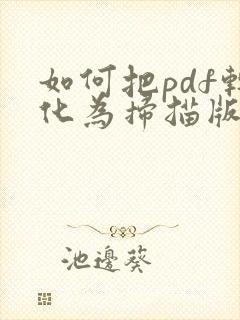 如何把pdf轉
化為掃描版
池邊葵